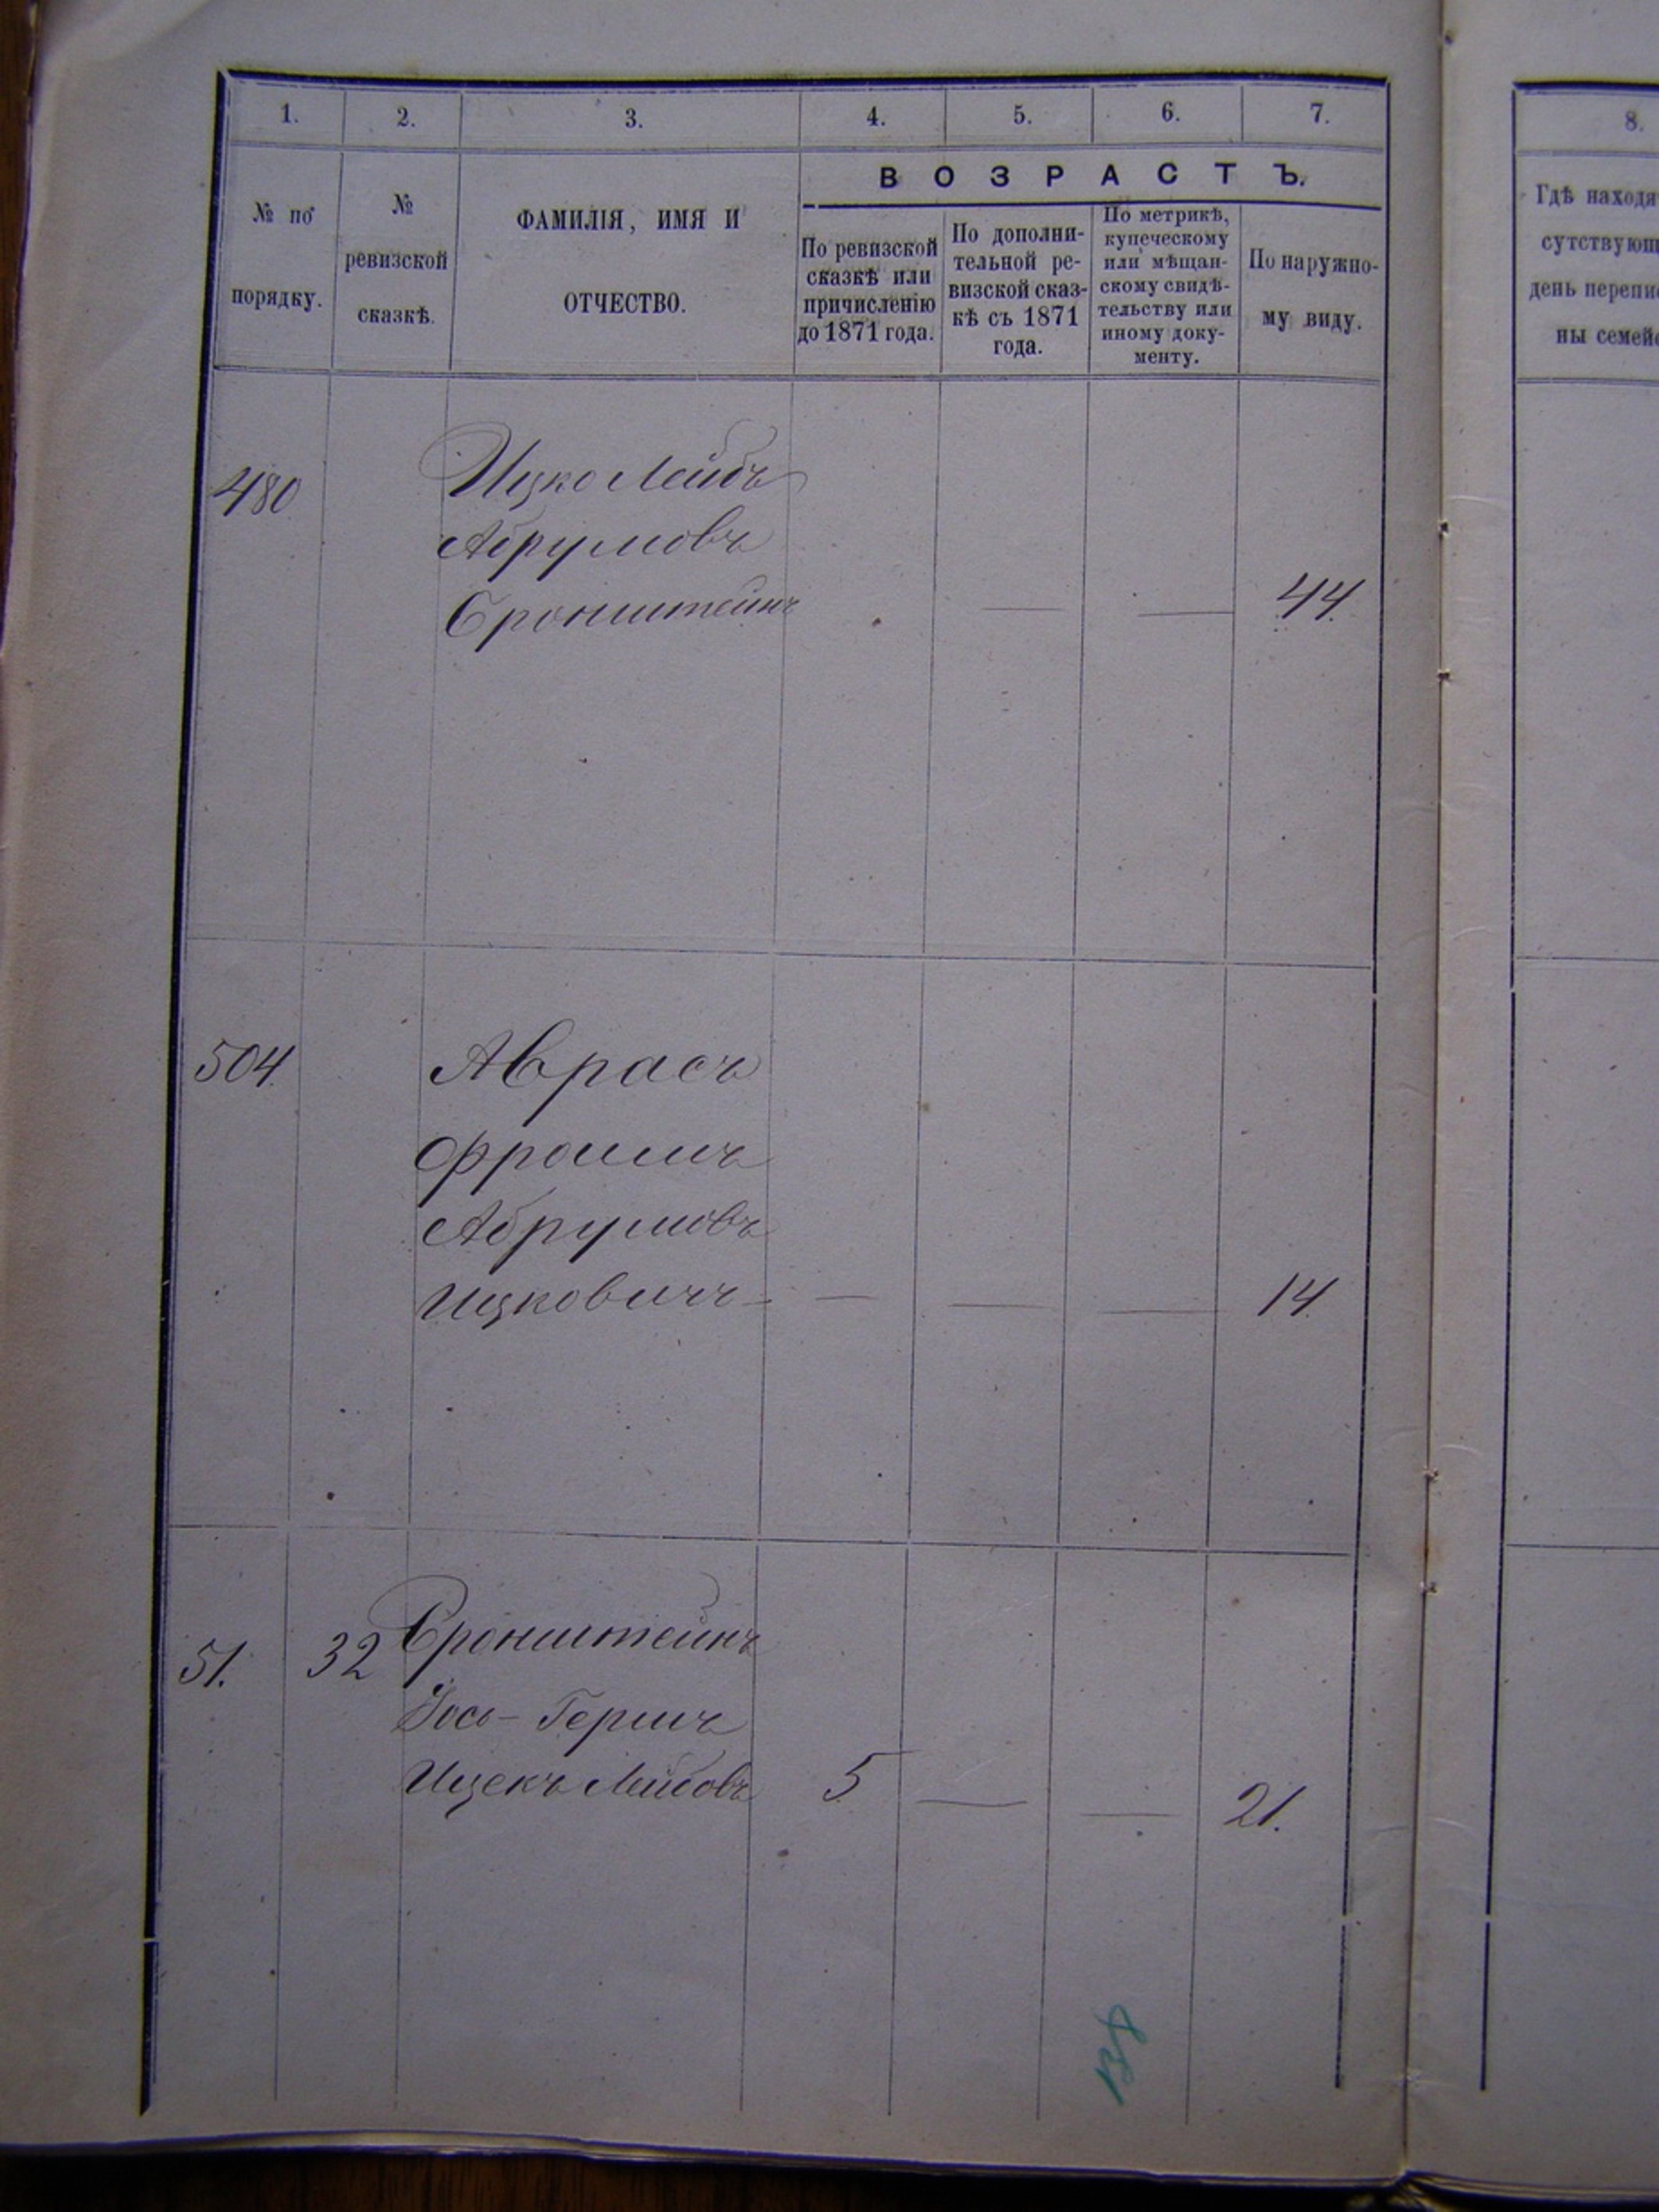 1. 2. 3. 4. 5. 6. 7.
ВОЗРАСТЪ.
№ по
порядку.
№
ревизской
сказкѣ.
ФАМИЛІЯ, ИМЯ И
ОТЧЕСТВО.
По ревизской
сказкѣ или
причисленію
до 1871 года.
По дополни-
тельной ре-
визской сказ-
кѣ съ 1871
года.
По метрикѣ,
купеческому
или мѣщан-
скому свидѣ-
тельству или
иному доку-
менту.
По наружно-
му виду.
480
Ицко Лейбъ
Абрумовъ
Бронштейнъ — — 44.
504.
Аврасъ
Фроимъ
Абрумовъ
Ицковичъ — — — — 14.
51. 32 Бронштейнъ
Іось-Гершъ
Ицекъ Лейбовъ 5 — — 21.
8.
Гдѣ находя
сутствующ
день перепи
ны семей